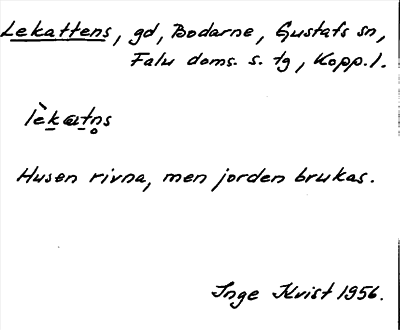 Lekattens, gd, Bodarne, Gustafs sn,
Falu doms. s. tg, Kopp. l.
lè̱ka̱tn̥s
Husen rivna, men jorden brukas.
Inge Kvist 1956.